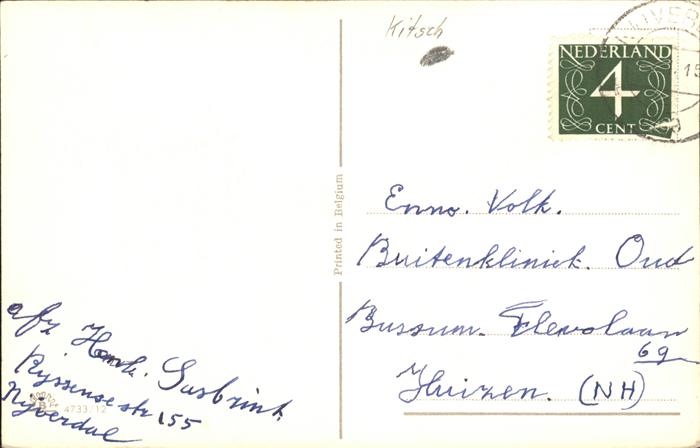 Kitsch
NEDERLAND
4
CENT
15
Printed in Belgium
Enno. Volk.
Buitenkliniek. Oud
Bussum. Flevolaan
69
Huizen. (NH)
afz Henk. Sasbrink.
Rijssensestr 155
Nijverdal
4733/12